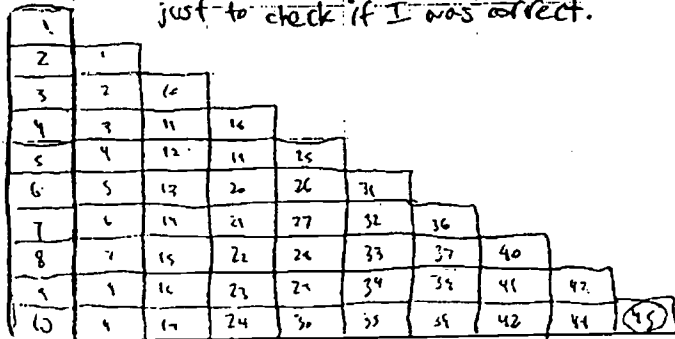 just to check if I was correct.
1
2 1
3 2 10
4 3 11 18
5 4 12 19 25
6 5 13 20 26 31
7 6 14 21 27 32 36
8 7 15 22 28 33 37 40
9 8 16 23 29 34 38 41 43
10 9 17 24 30 35 39 42 44 45